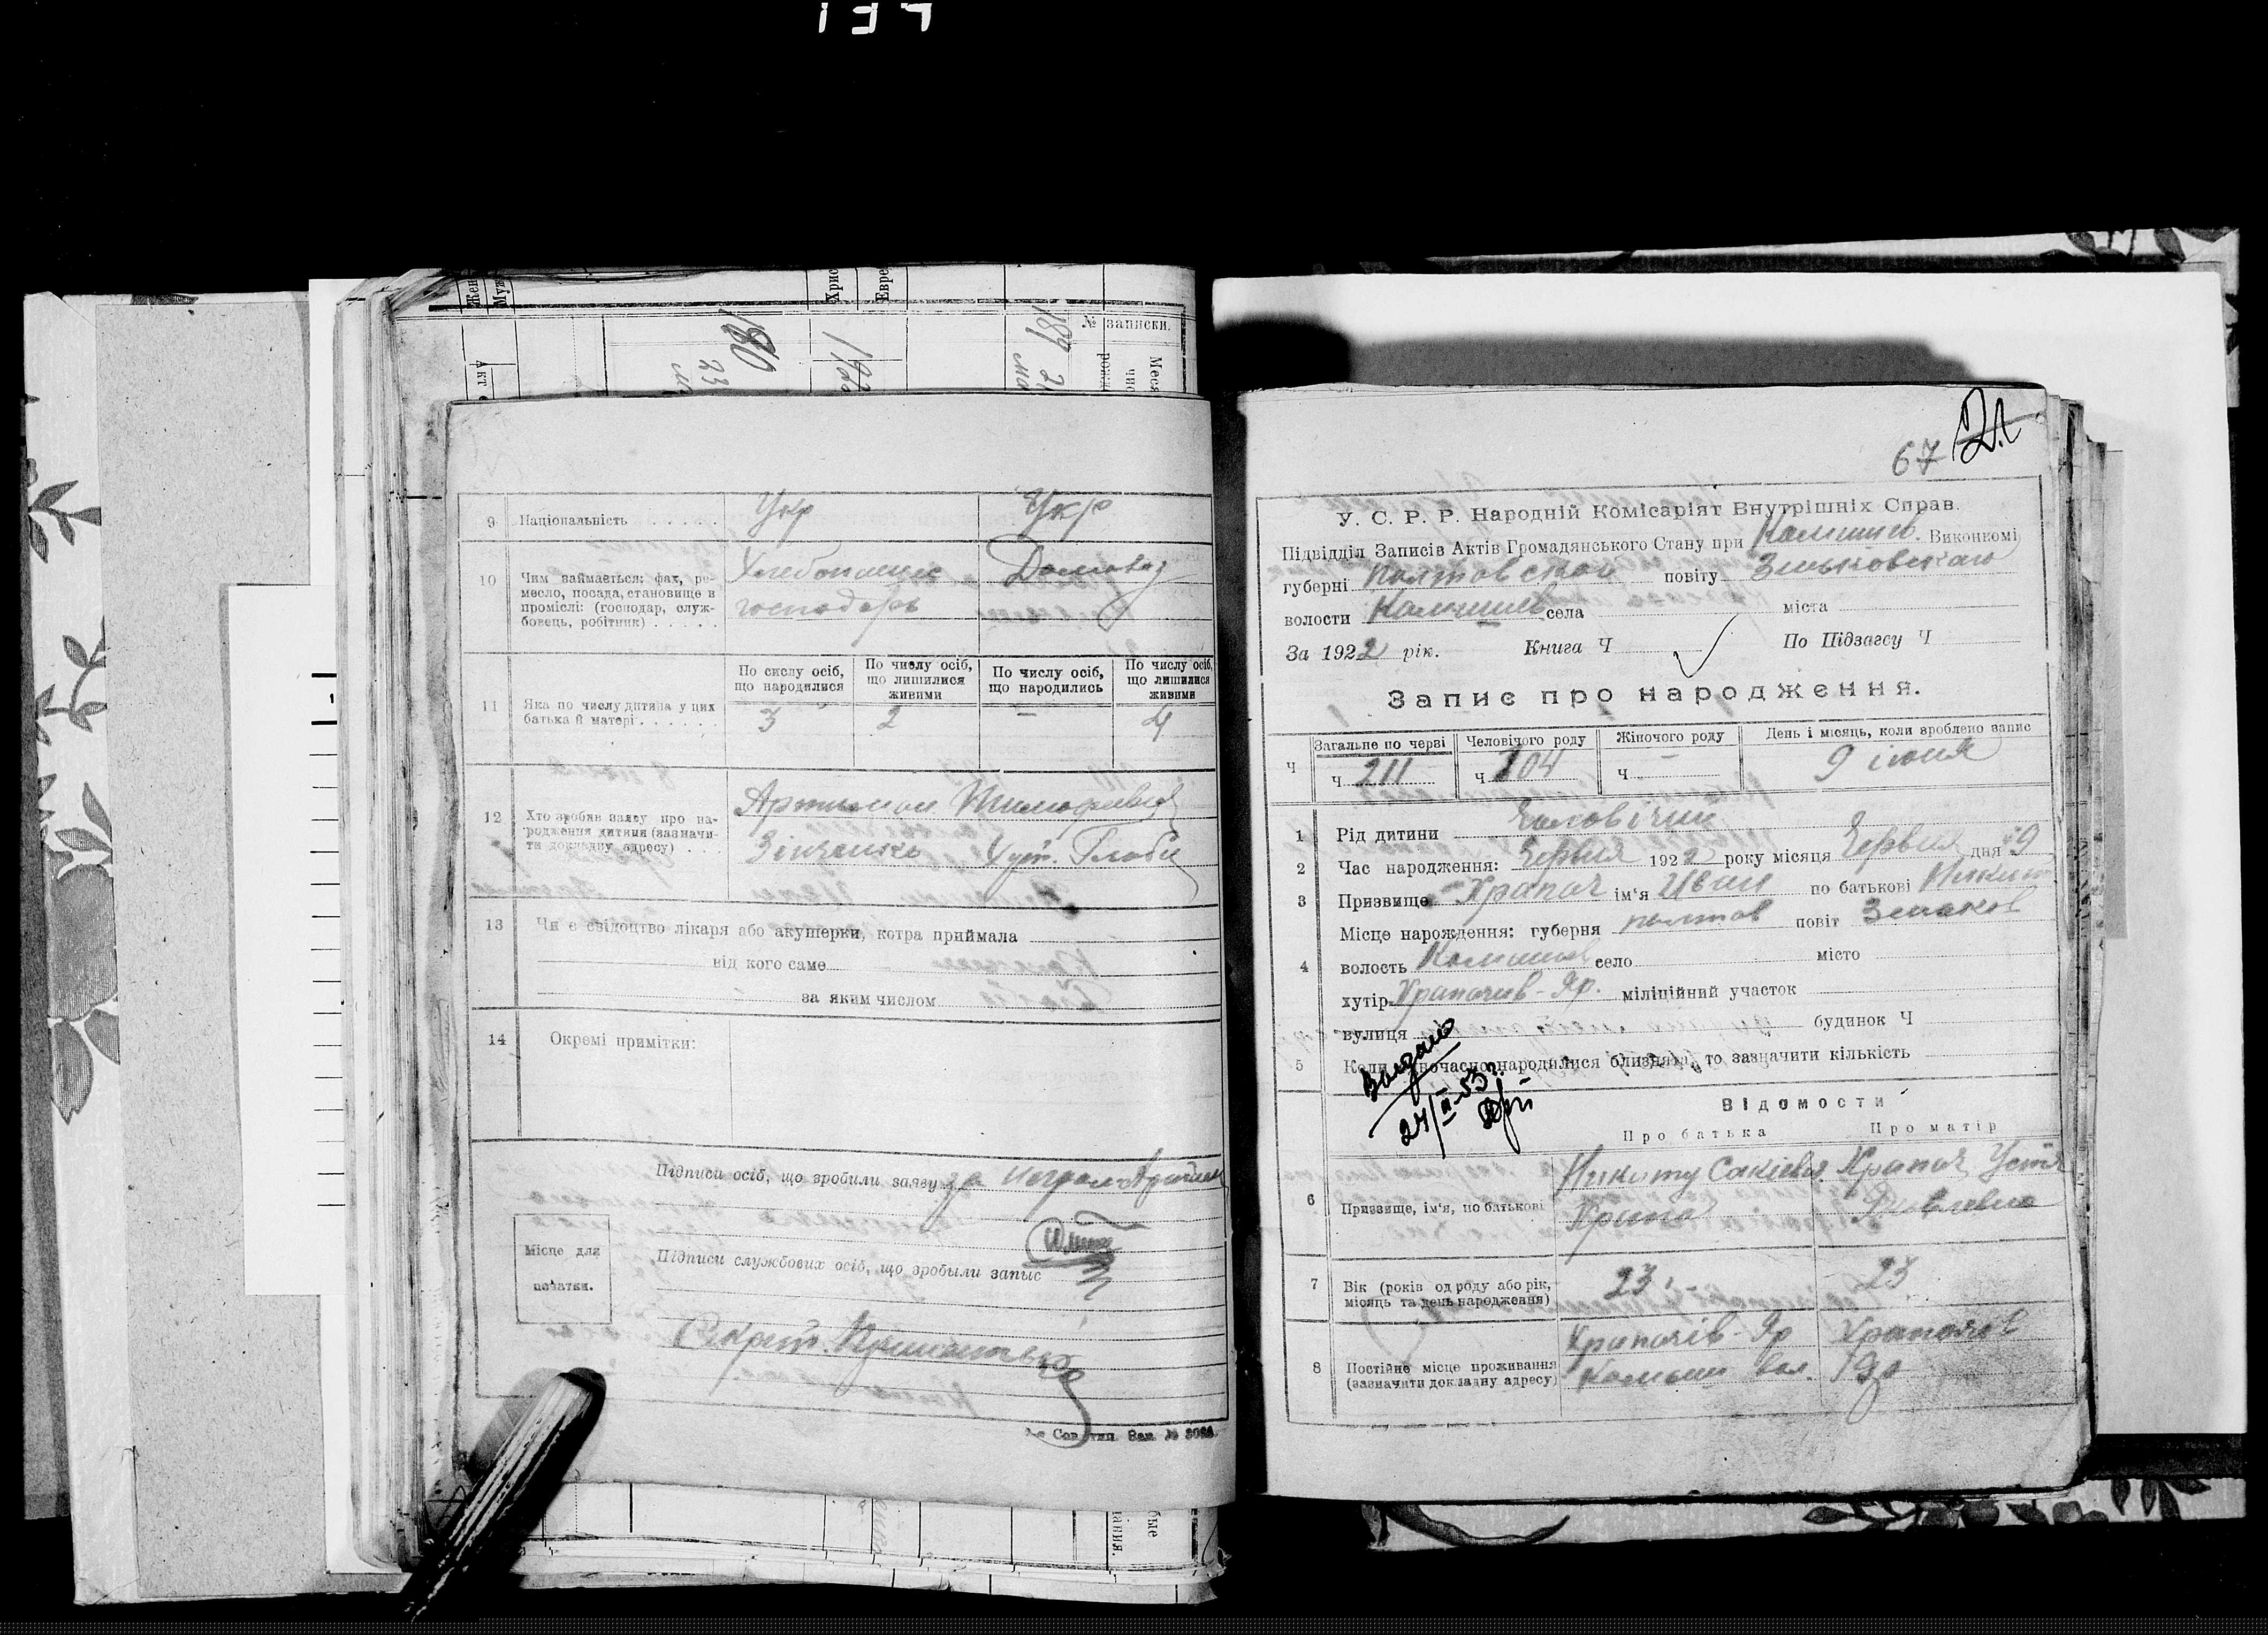 Жен
Муж
Хрис
Евре
№ записки.
180
23
192
189
Меся
Акт
9 Національність
Укр
Укр
10 Чим займається: фах, ре-
месло, посада, становище в
промислі: (господар, служ-
бовець, робітник)
Хлебопашес
господарь
Домовод
По сислу осіб, що народилися
По числу осіб, що лишилися живими
По числу осіб, що народились
По числу осіб, що лишилися живими
11 Яка по числу дитина у цих
батька й матері
3
2
—
4
12 Хто зробив заяву про на-
родження дитини (зазначи-
ти докладну адресу)
Зінченко Хут. Глоби
13 Чи є свідоцтво лікаря або акушерки, котра приймала
від кого саме
за яким числом
14 Окремі примітки:
Підписи осіб, що зробили заяву за неграм
Місце для
печатки.
Підписи службових осіб, що зробыли запыс
Секрет.
Сов. тип. Зак. № 3088.
67 21
У. С. Р. Р. Народній Комісаріят Внутрішніх Справ.
Підвідділ Записів Актів Громадянського Стану при Камишев. Виконкомі
губерні Полтовской повіту Зеньковскаго
волости Камишев села міста
За 1922 рік. Книга Ч По Підзагсу Ч
Запис про народження.
Ч
Загальне по черзі
Ч 211
Человічого роду
Ч 104
Жіночого роду
Ч —
День і місяць, коли зроблено запис
9 июня
1 Рід дитини Чоловічий
2 Час народження: Червня 1922 року місяця Червня дня 9
3 Призвище Храпач ім'я Иван по батькові Никит
4 Місце нарождення: губерня полтов повіт Зеньков
волость Камишев село місто
хутір Храпачив-Яр. міліційний участок
вулиця будинок Ч
5 Коли одночасно народилися близнята, то зазначити кількість
24/II-53г.
ВІДОМОСТИ
Про батька
Про матір
6 Призвище, ім'я, по батькові
Никиту Сакіевич
Храпач
Храпач Устя
Яковлевна
7 Вік (років од роду або рік,
місяць та день народження)
23
23
8 Постійне місце проживання
(зазначити докладну адресу)
Храпачів-Яр
Камыши вол.
Храпачов
Яр